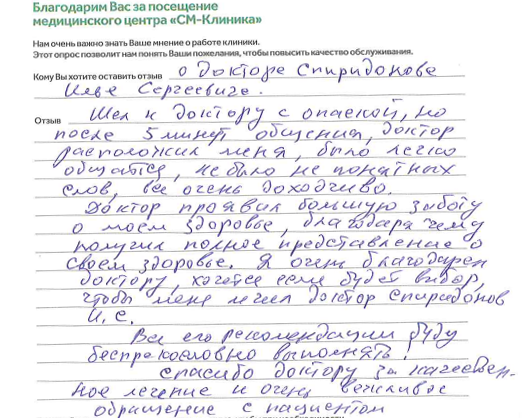 Благодарим Вас за посещение
медицинского центра «СМ-Клиника»
Нам очень важно знать Ваше мнение о работе клиники.
Этот опрос позволит нам понять Ваши пожелания, чтобы повысить качество обслуживания.
Кому Вы хотите оставить отзыв о Докторе Спиридонове
Илье Сергеевиче.
Отзыв Шел к доктору с опаской, но
после 5 минут общения, доктор
расположил меня, было легко
общаться, не было не понятных
слов, все очень доходчиво.
Доктор проявил большую заботу
о моем здоровье, благодаря чему
получил полное представление о
своем здоровье. Я очень благодарен
доктору, хочется если будет выбор,
чтобы меня лечил доктор Спиридонов
И.С.
Все его рекомендации буду
беспрекословно выполнять!
Спасибо доктору за качествен-
ное лечение и очень вежливое
обращение с пациентом